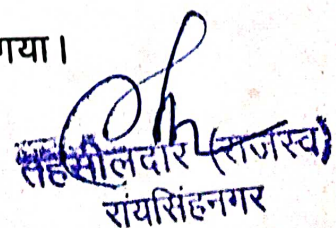 गया।
तहसीलदार (राजस्व)
रायसिंहनगर